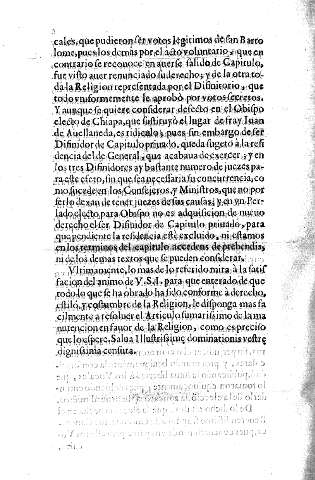 cales, que pudieron ser votos legitimos de san Barto
lome, pues los demas por el acto voluntario, que en
contrario se reconoce en averse salido de Capitulo,
fue visto auer renunciado su derecho; y de la otra to
da la Religion representada por el Difinitorio, que
todo vniformemente le aprobó por votos secretos.
Y aunque se quiere considerar defecto en el Obispo
electo de Chiapa, que sustituyó el lugar de fray Iuan
de Auellaneda, es ridiculo; pues sin embargo de ser
Difinidor de Capitulo priuado, queda sugeto á la resi
dencia del de General, que acababa de exercer; y en
los tres Difinidores ay bastante numero de juezes pa-
ra este efeto, sin que sea necessaria su concurrencia, co
mo sucede en los Consejeros, y Ministros, que no por
serlo dexan de tener juezes de sus causas; y en vn Per-
lado electo para Obispo no es adquisicion de nueuo
derecho el ser Difinidor de Capitulo priuado, para
que pendiente la residencia esté excluido, ni estamos
en los terminos del capitulo accedens de præbendis,
ni de los demas textos que se pueden considerar.
Vltimamente, lo mas de lo referido mira à la satis
facion del animo de V.S.I. para que enterado de que
todo lo que se ha obrado ha sido conforme à derecho,
estilo, y costumbre de la Religion, le disponga mas fa
cilmente a resoluer el Articulo sumarissimo de la ma
nutencion en fauor de la Religion, como es preciso
que lo espere. Salua Illustrissimę dominationis vestrę
dignissima censura.